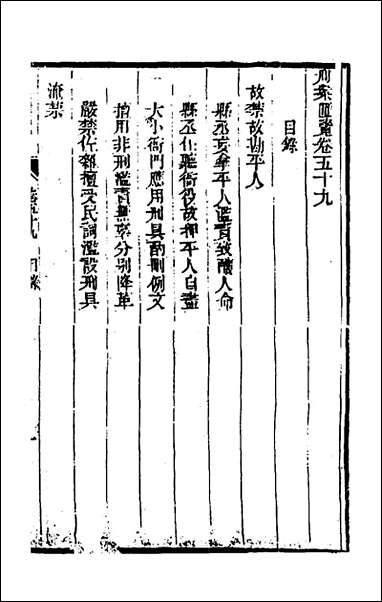 刑案匯覽卷五十九
目錄
故禁故勘平人
縣丞妄拿平人濫責致釀人命
縣丞任聽衙役故押平人自盡
大小衙門應用刑具酌刪例文
擅用非刑濫責無辜分別降革
嚴禁佐雜擅受民詞濫設刑具
淹禁